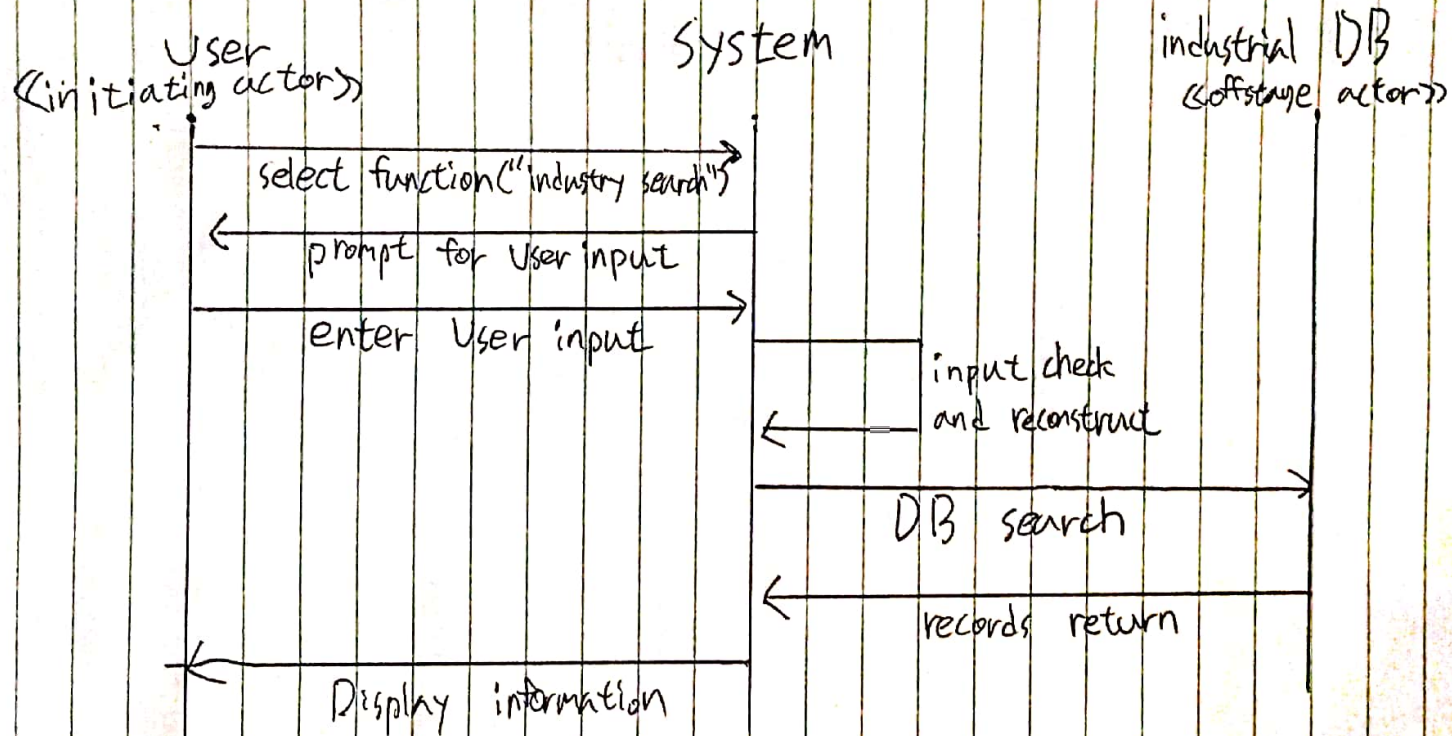 User
<<initiating actor>>
System
industrial DB
<<offstage actor>>
select function("industry search")
prompt for User input
enter User input
input check
and reconstruct
DB search
records return
Display information